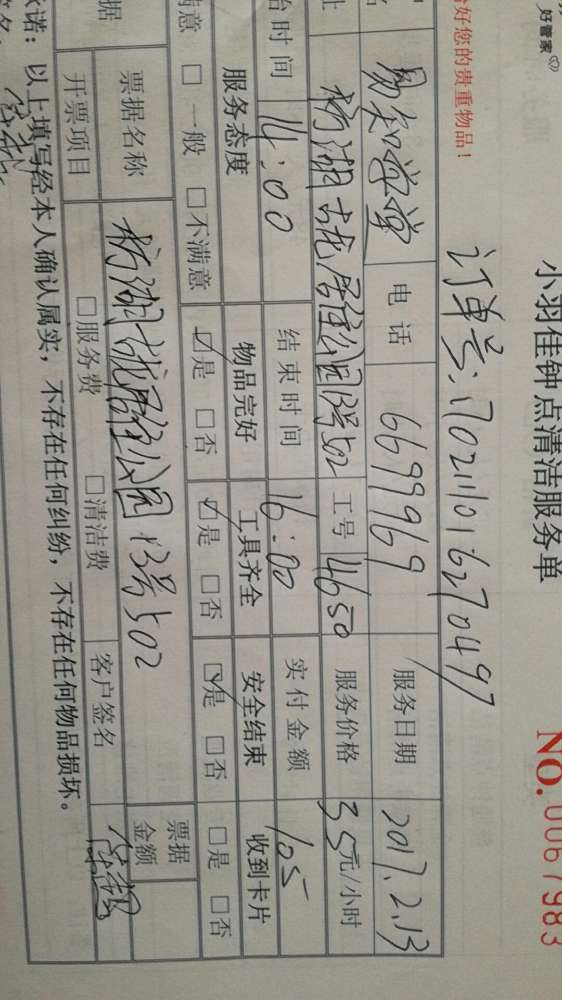 好管家
小羽佳钟点清洁服务单
NO. 0067983
好您的贵重物品！
订单号：170211016270497
易知学堂 电话 6699969 服务日期 2017.2.13
杨湖古龙居住公园13号502 工号 4650 服务价格 35元/小时
时间 14:00 结束时间 16:00 实付金额 105
服务态度 物品完好 工具齐全 安全结束 收到卡片
意 □一般 □不满意 ☑是 □否 ☑是 □否 ☑是 □否 □是 □否
据 票据名称 杨湖古龙居住公园13号502 票据金额
开票项目 □服务费 □清洁费 客户签名
诺：以上填写经本人确认属实，不存在任何纠纷，不存在任何物品损坏。